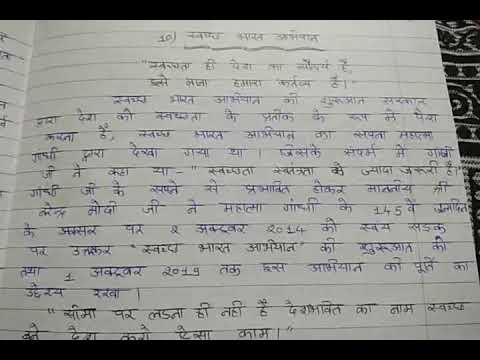 10) स्वच्छ भारत अभियान
"स्वच्छता ही देश का सौंदर्य है,
इसे लाना हमारा कर्तव्य है।"
स्वच्छ भारत अभियान की शुरुआत सरकार
द्वारा देश को स्वच्छता के प्रतीक के रूप में पेश
करना है, स्वच्छ भारत अभियान का सपना महात्मा
गांधी द्वारा देखा गया था। जिसके संदर्भ में गांधी
जी ने कहा था - "स्वच्छता स्वतंत्रता से ज्यादा जरूरी है।"
गांधी जी के सपने से प्रभावित होकर माननीय श्री
नरेन्द्र मोदी जी ने महात्मा गांधी के 145वें जन्मदिन
के अवसर पर 2 अक्टूबर 2014 को स्वयं सड़क
पर उतरकर "स्वच्छ भारत अभियान" की शुरुआत की
तथा 1 अक्टूबर 2019 तक इस अभियान की पूर्ति का
उद्देश्य रखा।
"सीमा पर लड़ना ही नहीं है देशभक्ति का नाम स्वच्छ
बने देश करो ऐसा काम।"